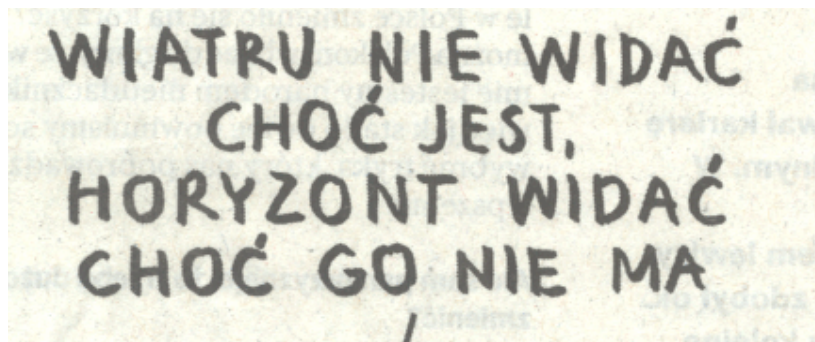 WIATRU NIE WIDAĆ
CHOĆ JEST,
HORYZONT WIDAĆ
CHOĆ GO NIE MA